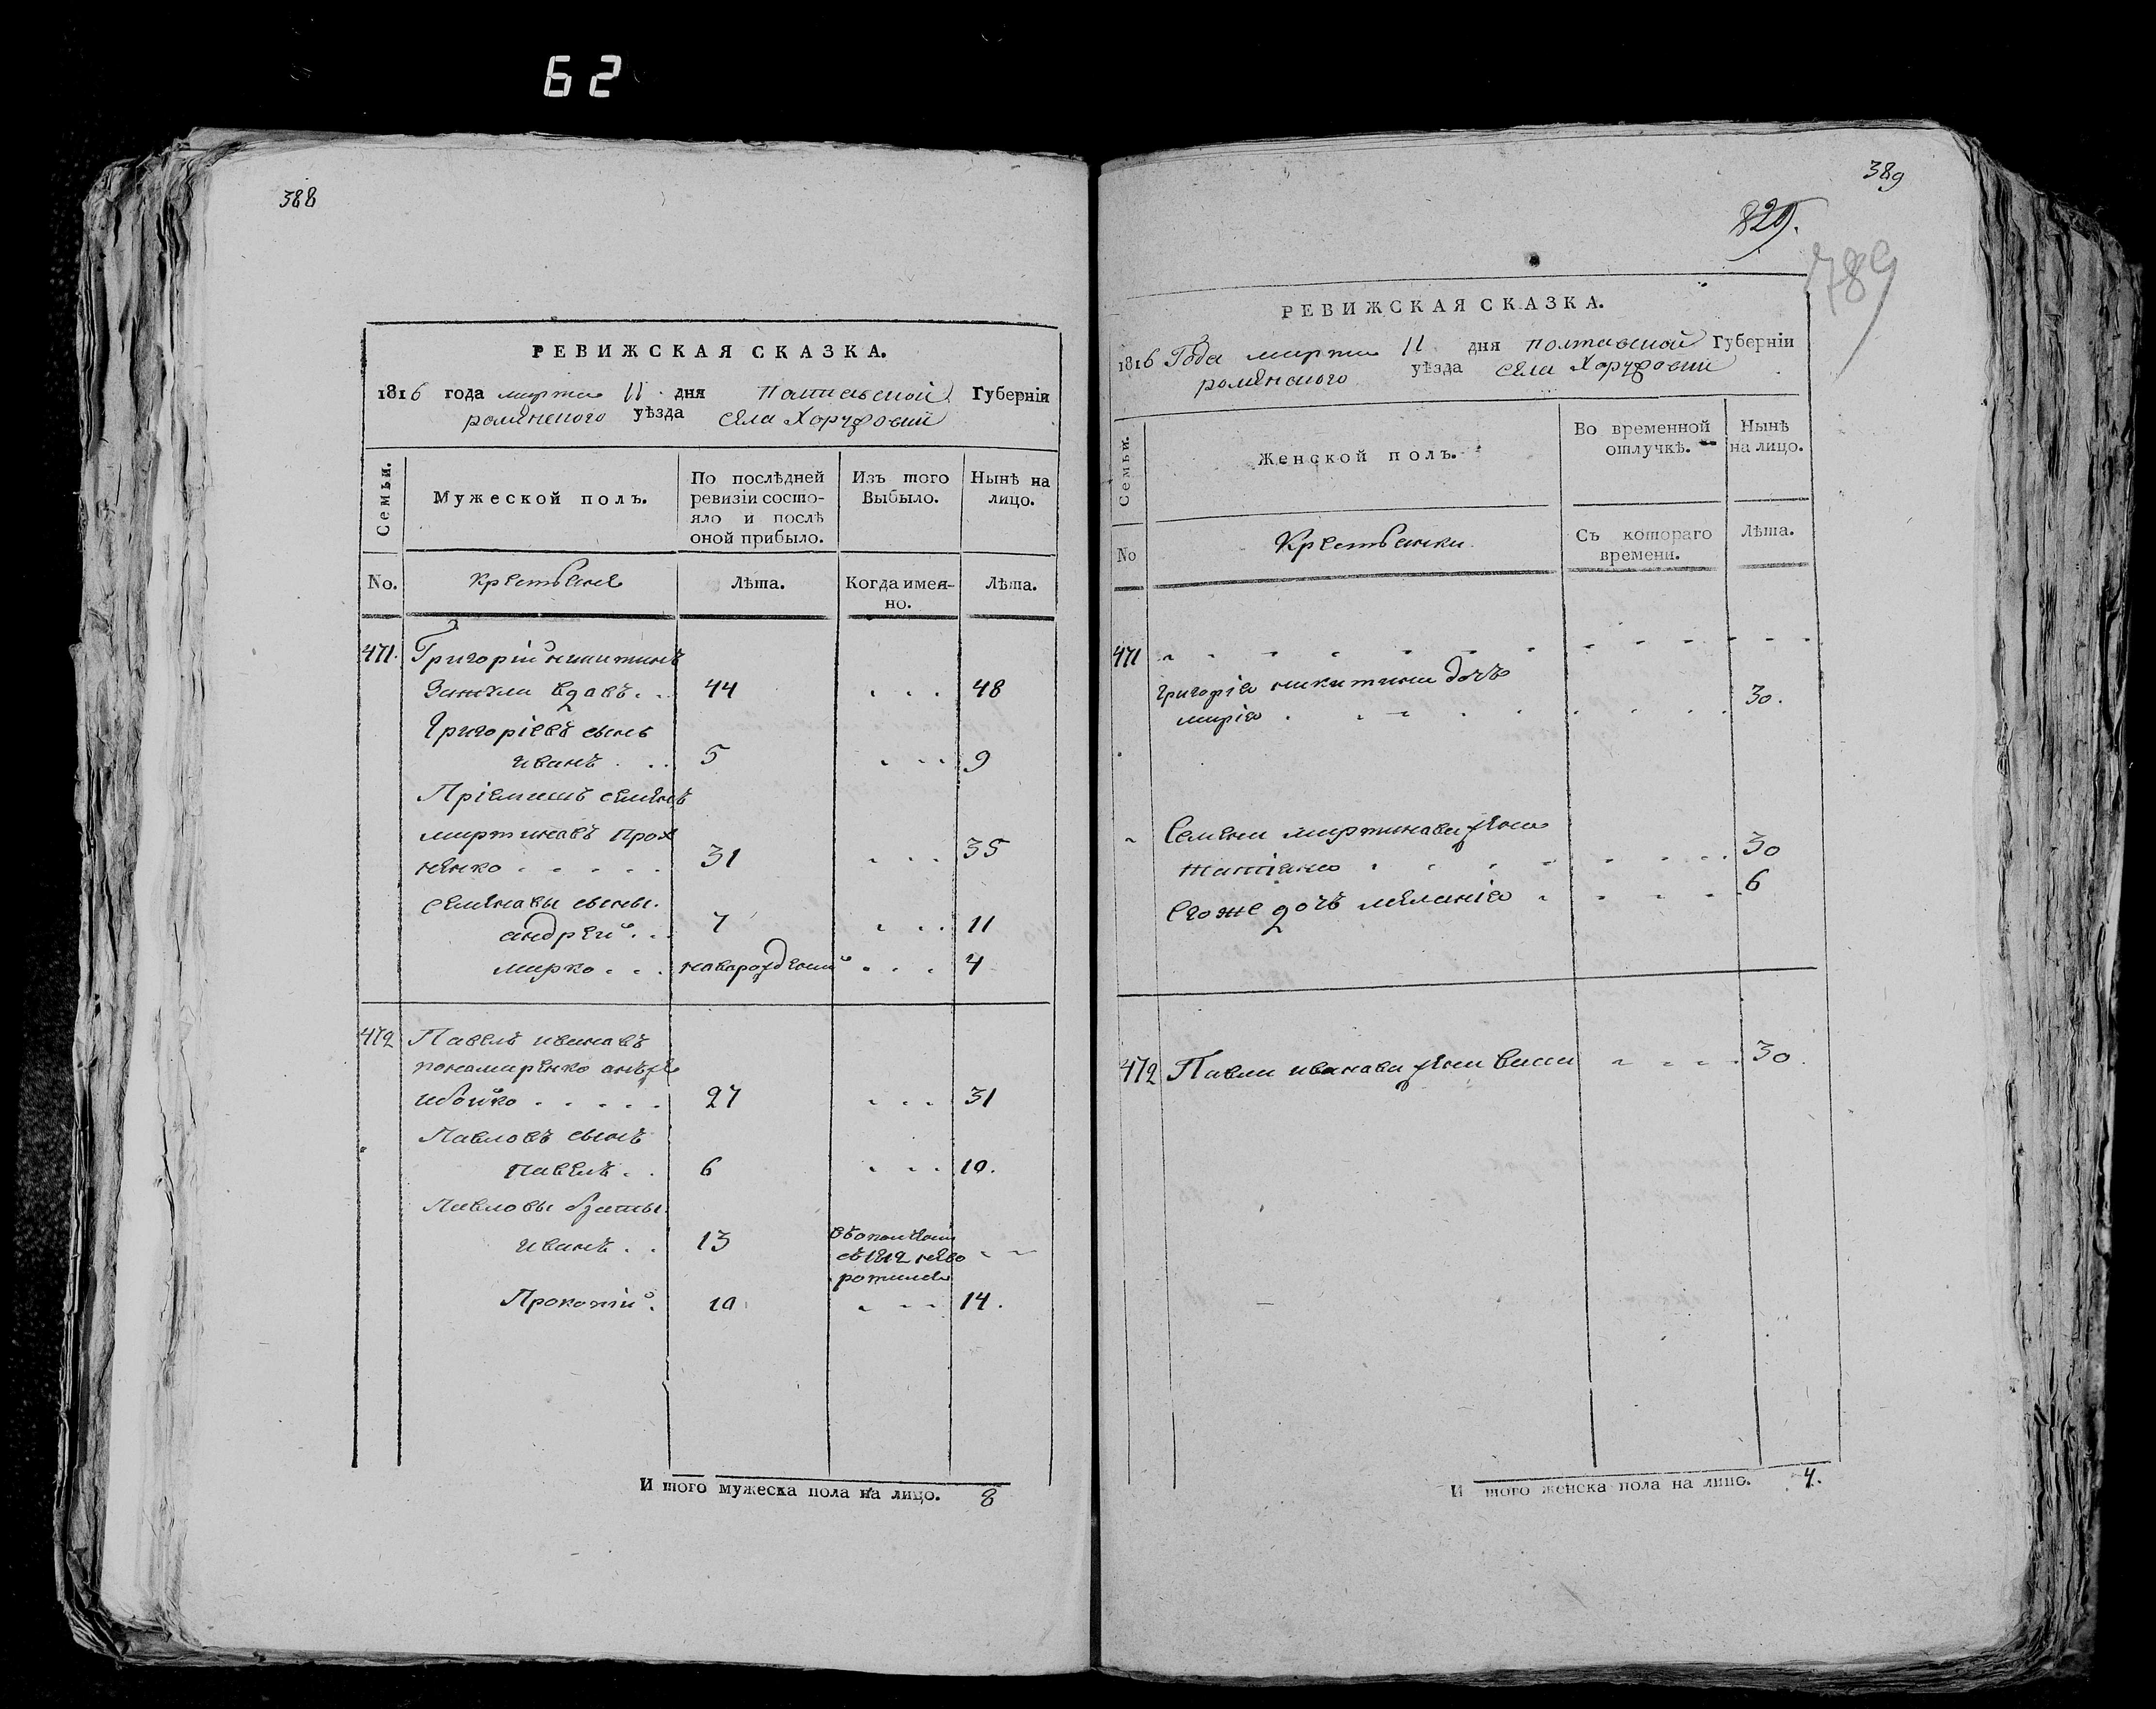 62
388
РЕВИЖСКАЯ СКАЗКА.
1816 года марта 11 дня Полтавской Губерніи
роменского уѣзда села Хоружовки
Семьи.
Мужеской полъ.
По послѣдней ревизіи состояло и послѣ оной прибыло.
Изъ того Выбыло.
Нынѣ на лицо.
No.
Крестьяне
Лѣта.
Когда именно.
Лѣта.
471. Григорій никитинъ
вдовъ. . . 44 . . . 48
Григоріевъ сынъ
иванъ . . . 5 . . . 9
Пріемышъ семенъ
мартиновъ Прох
ненко . . . . . 31 . . . 35
семеновы сыны.
андрей . . . 7 . . . 11
марко . . . новорожденный . . . 4
472 Павелъ ивановъ
понамаренко онъже
ибойко . . . . . 27 . . . 31
Павловъ сынъ
павелъ . . 6 . . . 10.
Павловы браты.
иванъ . . 13 въополченіи
съ1812 нево
ротился
Прокопій . 10 . . . 14.
И того мужеска пола на лицо. 8
389
829.
789
РЕВИЖСКАЯ СКАЗКА.
1816 Года марта 11 дня полтавской Губерніи
роменского уѣзда села Хоружовки
Семьи.
Женской полъ.
Во временной отлучкѣ.
Нынѣ на лицо.
No
Крестьянки
Съ котораго времени.
Лѣта.
471
григорія никитина дочъ
марія . . . . . . . . 30.
Семена мартинова жена
татіяна . . . . . . . 30
Егоже дочъ меланія . . . . 6
472 Павла иванова жена васса . . . . 30.
И того женска пола на лицо. 4.